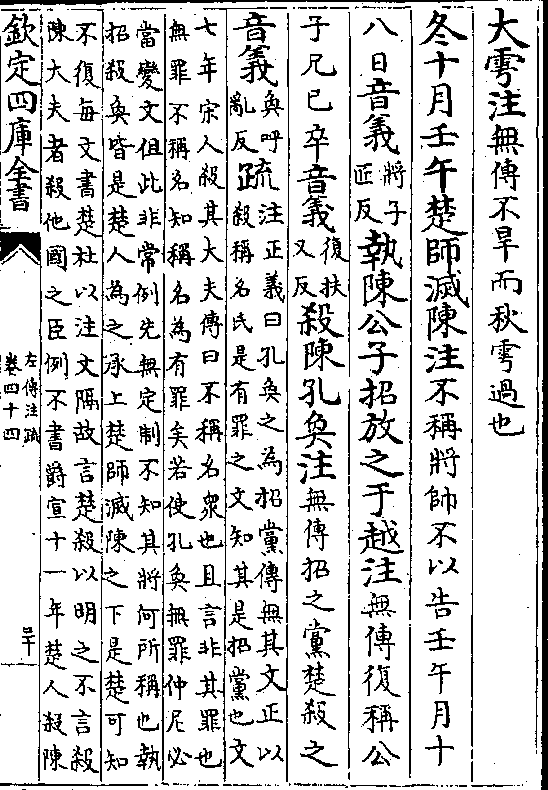 大雩注無傳不旱而秋雩過也
冬十月壬午楚師滅陳注不稱將帥不以告壬午月十
八日音義將子
匠反執陳公子招放之于越注無傳復稱公
子兄已卒音義復扶
又反殺陳孔奐注無傳招之黨楚殺之
音義奐呼
亂反疏注正義曰孔奐之為招黨傳無其文正以
殺稱名氏是有罪之文知其是招黨也文
七年宋人殺其大夫傳曰不稱名衆也且言非其罪也
無罪不稱名知稱名為有罪矣若使孔奐無罪仲尼必
當變文但此非常例先無定制不知其將何所稱也執
招殺奐皆是楚人為之承上楚師滅陳之下是楚可知
不復每文書楚杜以注文隔故言楚殺以明之不言殺
陳大夫者殺他國之臣例不書爵宣十一年楚人殺陳
欽定四庫全書
左傳注疏
卷四十四